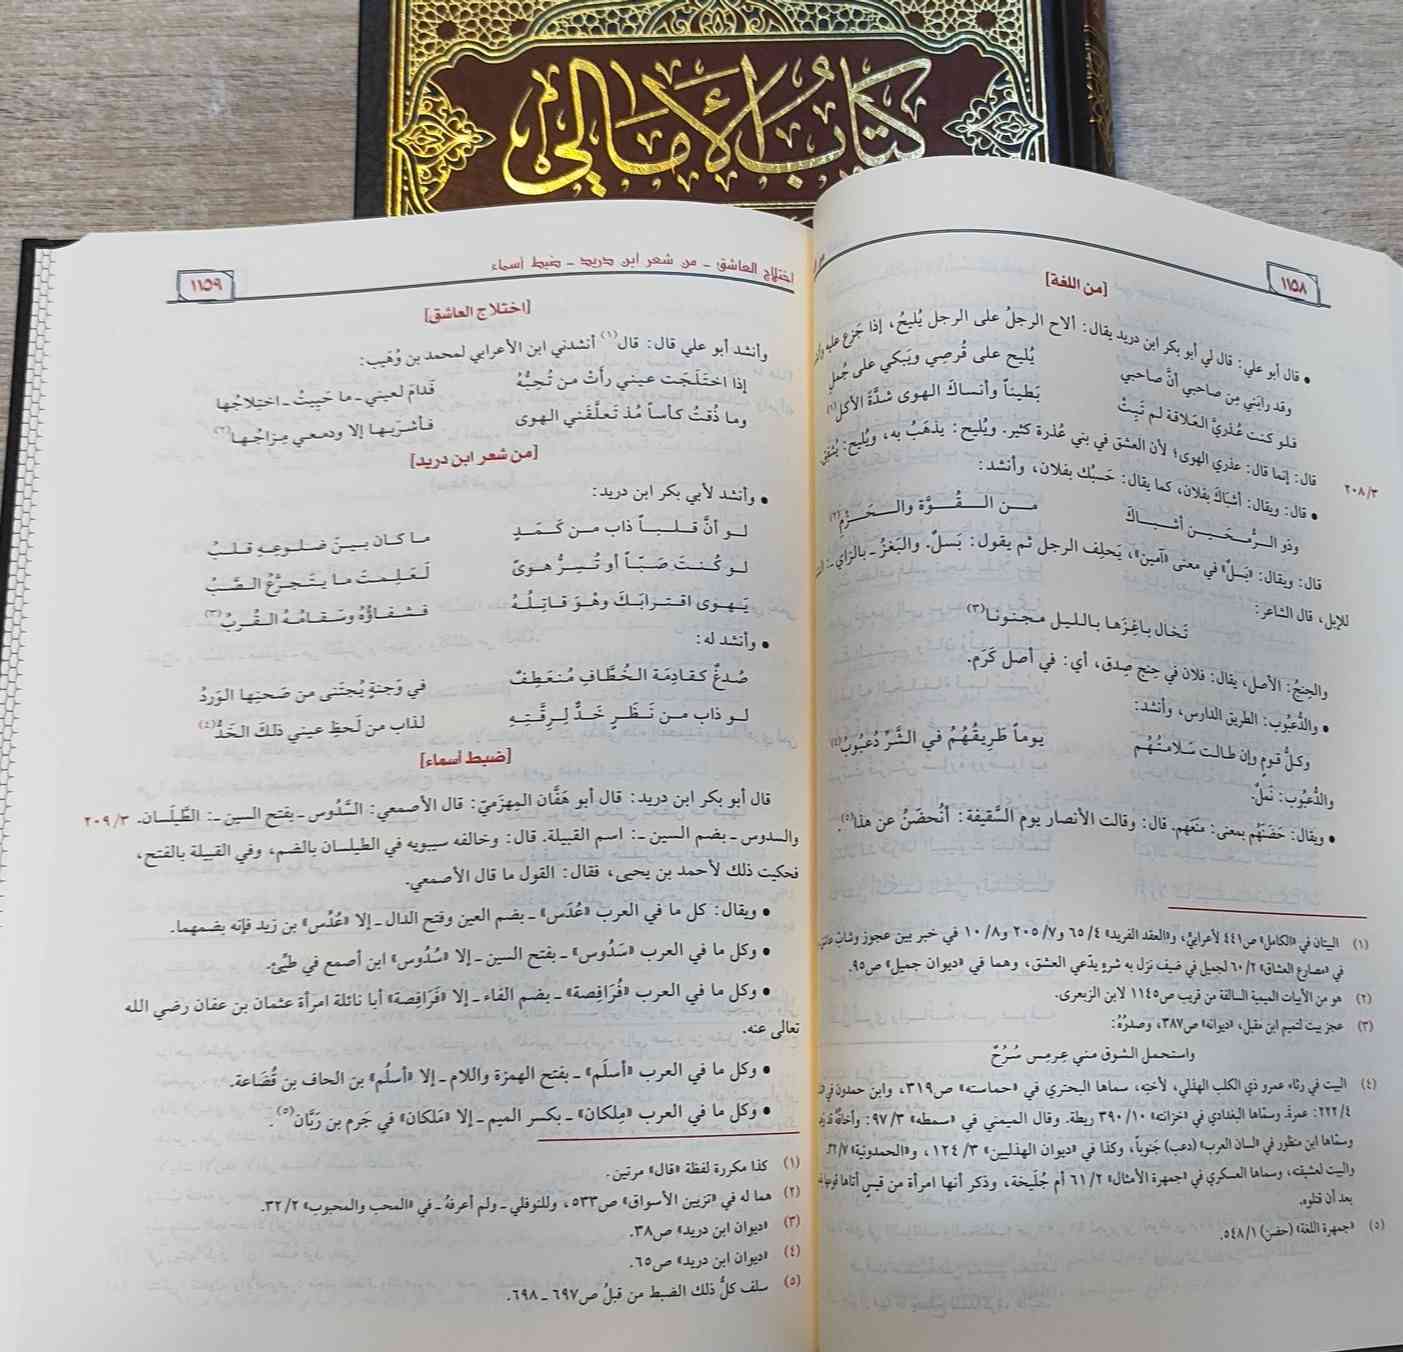 كتاب الأمالي
١١٥٨
[من اللغة]
• قال أبو علي: قال لي أبو بكر ابن دريد يقال: ألاح الرجلُ على الرجل يُليحُ، إذا جَزع عليه
وقد رابَني مِن صاحبي أنَّ صاحبي يُليح على قُرصي ويَبكي على جُملِ
فلو كنت عُذريَّ العَلاقة لم تَبِتْ بَطيناً وأنساكَ الهوى شدَّةَ الأكلِ(١)
قال: إنما قال: عذري الهوى؛ لأن العشق في بني عُذرة كثير. ويُليح: يذهَبُ به، ويُليح: يُشفِق
٢٠٨/٣
• قال: ويقال: أشباكَ بفلان، كما يقال: حَسبُك بفلان، وأنشد:
وذو الرُّمحَين أشباكَ من القُوَّة والحَزْمِ(٢)
قال: ويقال: «بَسلٌ» في معنى «آمين»، يَحلِف الرجل ثم يقول: بَسلٌ. والبَغزُ ـ بالزاي ـ:
للإبل، قال الشاعر:
تَخال باغِزَها بالليل مجنونا(٣)
والحِنجُ: الأصل، يقال: فلان في حِنج صِدق، أي: في أصل كَرَم.
• والدُّعبُوب: الطريق الدارس، وأنشد:
وكلُّ قومٍ وإن طالت سَلامتُهُم يوماً طَريقُهُمُ في الشَّرِّ دُعبُوبُ(٤)
والدُّعبُوب: نَملٌ.
• ويقال: حَضَنَهُم بمعنى: منَعَهم. قال: وقالت الأنصار يوم السَّقيفة: أتُحضَنُ عن هذا(٥).
(١) البيتان في «الكامل» ص٤٤١ لأعرابيٍّ، و«العقد الفريد» ٦٥/٤ و٢٠٥/٧ و١٠/٨ في خبر بين عجوز وشابٍّ
في «مصارع العشاق» ٦٠/٢ لجميل في ضيف نزل به شرهٍ يدّعي العشق، وهما في «ديوان جميل» ص٩٥.
(٢) هو من الأبيات الميمية السالفة من قريب ص١١٤٥ لابن الزبعرى.
(٣) عجز بيت لتميم ابن مقبل، «ديوانه» ص٣٨٧، وصدرُهُ:
واستحمل الشوق مني عِرمِس سُرُحٌ
(٤) البيت في رثاء عمرو ذي الكلب الهذلي، لأخته، سماها البحتري في «حماسته» ص٣١٩، وابن حمدون في
٢٢٢/٤: عمرة. وسمّاها البغدادي في «خزانته» ٣٩٠/١٠ ريطة. وقال الميمني في «سمطه» ٩٧/٣: وأخالُه
وسمّاها ابن منظور في «لسان العرب» (دعب) جَنوباً، وكذا في «ديوان الهذليين» ١٢٤/٣، و«الحمدونية»
والبيت لعشيقته، وسماها العسكري في «جمهرة الأمثال» ٦١/٢ أم جُلَيحة، وذكر أنها امرأة من قيسٍ أتاها
بعد أن قتلوه.
(٥) «جمهرة اللغة» (حضن) ٥٤٨/١.
اختلاج العاشق ـ من شعر ابن دريد ـ ضبط أسماء
١١٥٩
[اختلاج العاشق]
وأنشد أبو علي قال: قال(١) أنشدني ابن الأعرابي لمحمد بن وُهَيب:
إذا اختَلَجَت عيني رأَتْ من تُحِبُّهُ فَدامَ لعيني ـ ما حَيِيتُ ـ اختِلاجُها
وما ذُقتُ كأساً مُذ تَعلَّقَني الهوى فأشرَبها إلا ودمعي مِزاجُها(٢)
[من شعر ابن دريد]
• وأنشد لأبي بكر ابن دريد:
لو أنَّ قلباً ذاب من كَمَدٍ ما كان بينَ ضلوعِهِ قلبُ
لو كُنتَ صَبّاً أو تُسِرُّ هوىً لَعَلِمتَ ما يتَجرَّعُ الصَّبُّ
يَهوى اقترابَكَ وهْوَ قاتِلُهُ فشفاؤُهُ وسَقامُهُ القُربُ(٣)
• وأنشد له:
صُدغٌ كقادِمَة الخُطَّافِ مُنعَطِفٌ في وَجنةٍ يُجتَنى من صَحنِها الوَردُ
لو ذاب من نَظَرٍ خَدٌّ لِرِقَّتِهِ لذاب من لَحظِ عيني ذلكَ الخَدُّ(٤)
[ضبط أسماء]
قال أبو بكر ابن دريد: قال أبو هَفَّان المِهزَميّ: قال الأصمعي: السَّدُوس ـ بفتح السين ـ: الطَّيلَسان. ٢٠٩/٣
والسدوس ـ بضم السين ـ: اسم القبيلة. قال: وخالفه سيبويه في الطيلسان بالضم، وفي القبيلة بالفتح،
فحكيت ذلك لأحمد بن يحيى، فقال: القول ما قال الأصمعي.
• ويقال: كل ما في العرب «عُدَس» ـ بضم العين وفتح الدال ـ إلا «عُدُس» بن زيد فإنه بضمهما.
• وكل ما في العرب «سَدُوس» ـ بفتح السين ـ إلا «سُدُوس» ابن أصمع في طيِّئ.
• وكل ما في العرب «فُرافِصة» ـ بضم الفاء ـ إلا «فَرَافِصة» أبا نائلة امرأة عثمان بن عفان رضي الله
تعالى عنه.
• وكل ما في العرب «أسلَم» ـ بفتح الهمزة واللام ـ إلا «أسلُم» بن الحاف بن قُضَاعة.
• وكل ما في العرب «مِلكان» ـ بكسر الميم ـ إلا «مَلكان» في جَرم بن رَبَّان(٥).
(١) كذا مكررة لفظة «قال» مرتين.
(٢) هما له في «تزيين الأسواق» ص٥٣٣، وللنوفلي ـ ولم أعرفهُ ـ في «المحب والمحبوب» ٣٢/٢.
(٣) «ديوان ابن دريد» ص٣٨.
(٤) «ديوان ابن دريد» ص٦٥.
(٥) سلف كلُّ ذلك الضبط من قبلُ ص٦٩٧ ـ ٦٩٨.